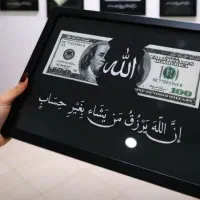 الله
100
إِنَّ اللَّهَ يَرْزُقُ مَن يَشَاء بِغَيْرِ حِسَابٍ